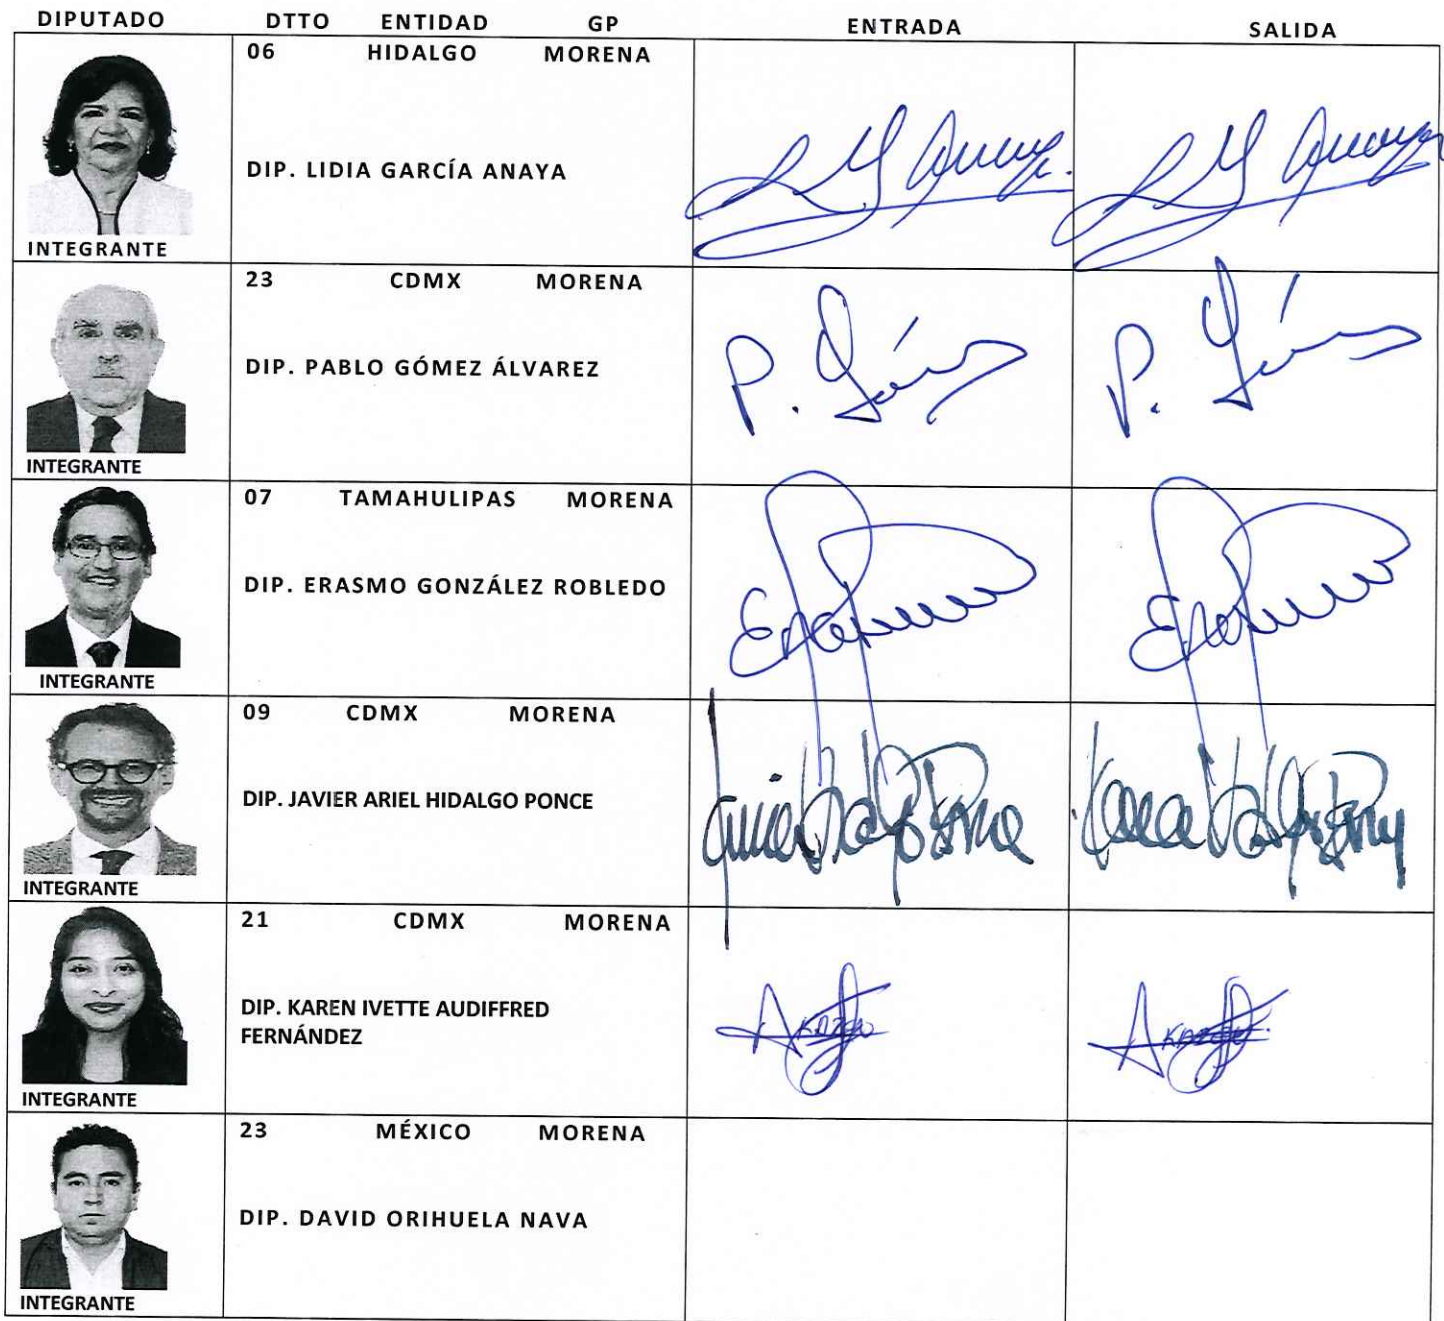 DIPUTADO DTTO ENTIDAD GP ENTRADA SALIDA
06 HIDALGO MORENA
DIP. LIDIA GARCÍA ANAYA
INTEGRANTE
23 CDMX MORENA
DIP. PABLO GÓMEZ ÁLVAREZ
P.
P.
INTEGRANTE
07 TAMAHULIPAS MORENA
DIP. ERASMO GONZÁLEZ ROBLEDO
INTEGRANTE
09 CDMX MORENA
DIP. JAVIER ARIEL HIDALGO PONCE
INTEGRANTE
21 CDMX MORENA
DIP. KAREN IVETTE AUDIFFRED
FERNÁNDEZ
INTEGRANTE
23 MÉXICO MORENA
DIP. DAVID ORIHUELA NAVA
INTEGRANTE